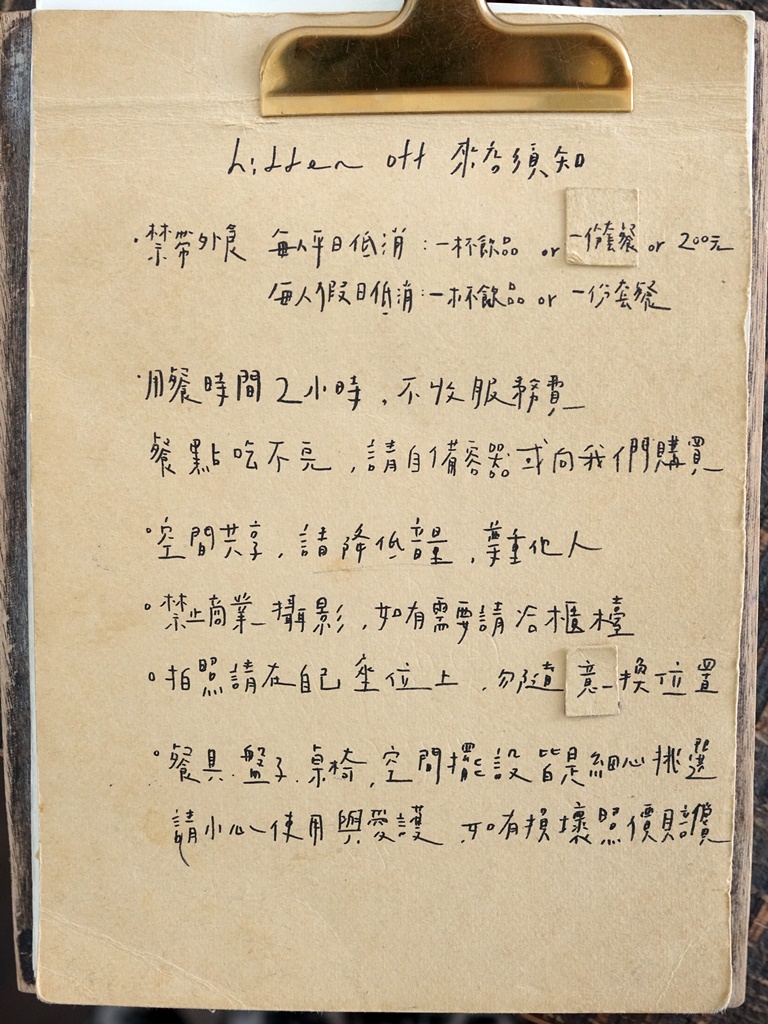 hidden off 來店須知
·禁帶外食 每人平日低消:一杯飲品 or 一份套餐 or 200元
每人假日低消:一杯飲品 or 一份套餐
·用餐時間2小時,不收服務費
餐點吃不完,請自備容器或向我們購買
·空間共享,請降低音量,尊重他人
·禁止商業攝影,如有需要請洽櫃檯
·拍照請在自己座位上,勿隨意換位置
·餐具.盤子.桌椅,空間擺設皆是細心挑選
請小心使用與愛護 如有損壞照價賠償